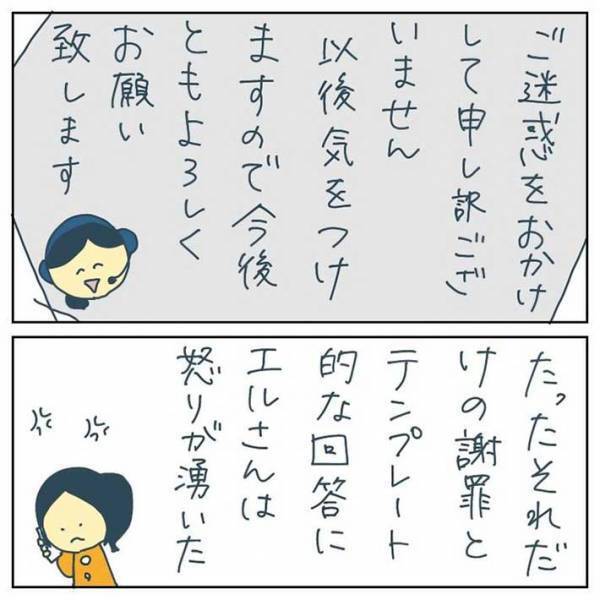 ご迷惑をおかけ
して申し訳ござ
いません
以後気をつけ
ますので今後
ともよろしく
お願い
致します
たったそれだ
けの謝罪と
テンプレート
的な回答に
エルさんは
怒りが湧いた